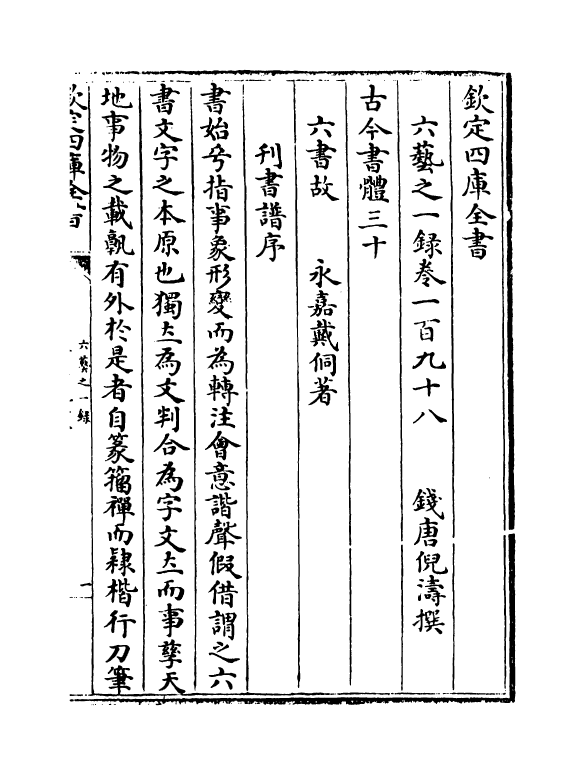 欽定四庫全書
六藝之一錄卷一百九十八 錢唐倪濤撰
古今書體三十
六書故 永嘉戴侗著
刋書譜序
書始兮指事象形變而為轉注會意諧聲假借謂之六
書文字之本原也獨立為文判合為字文立而事孳天
地事物之載孰有外於是者自篆籀禪而隸楷行刀筆
欽定四庫全書
六藝之一錄
一